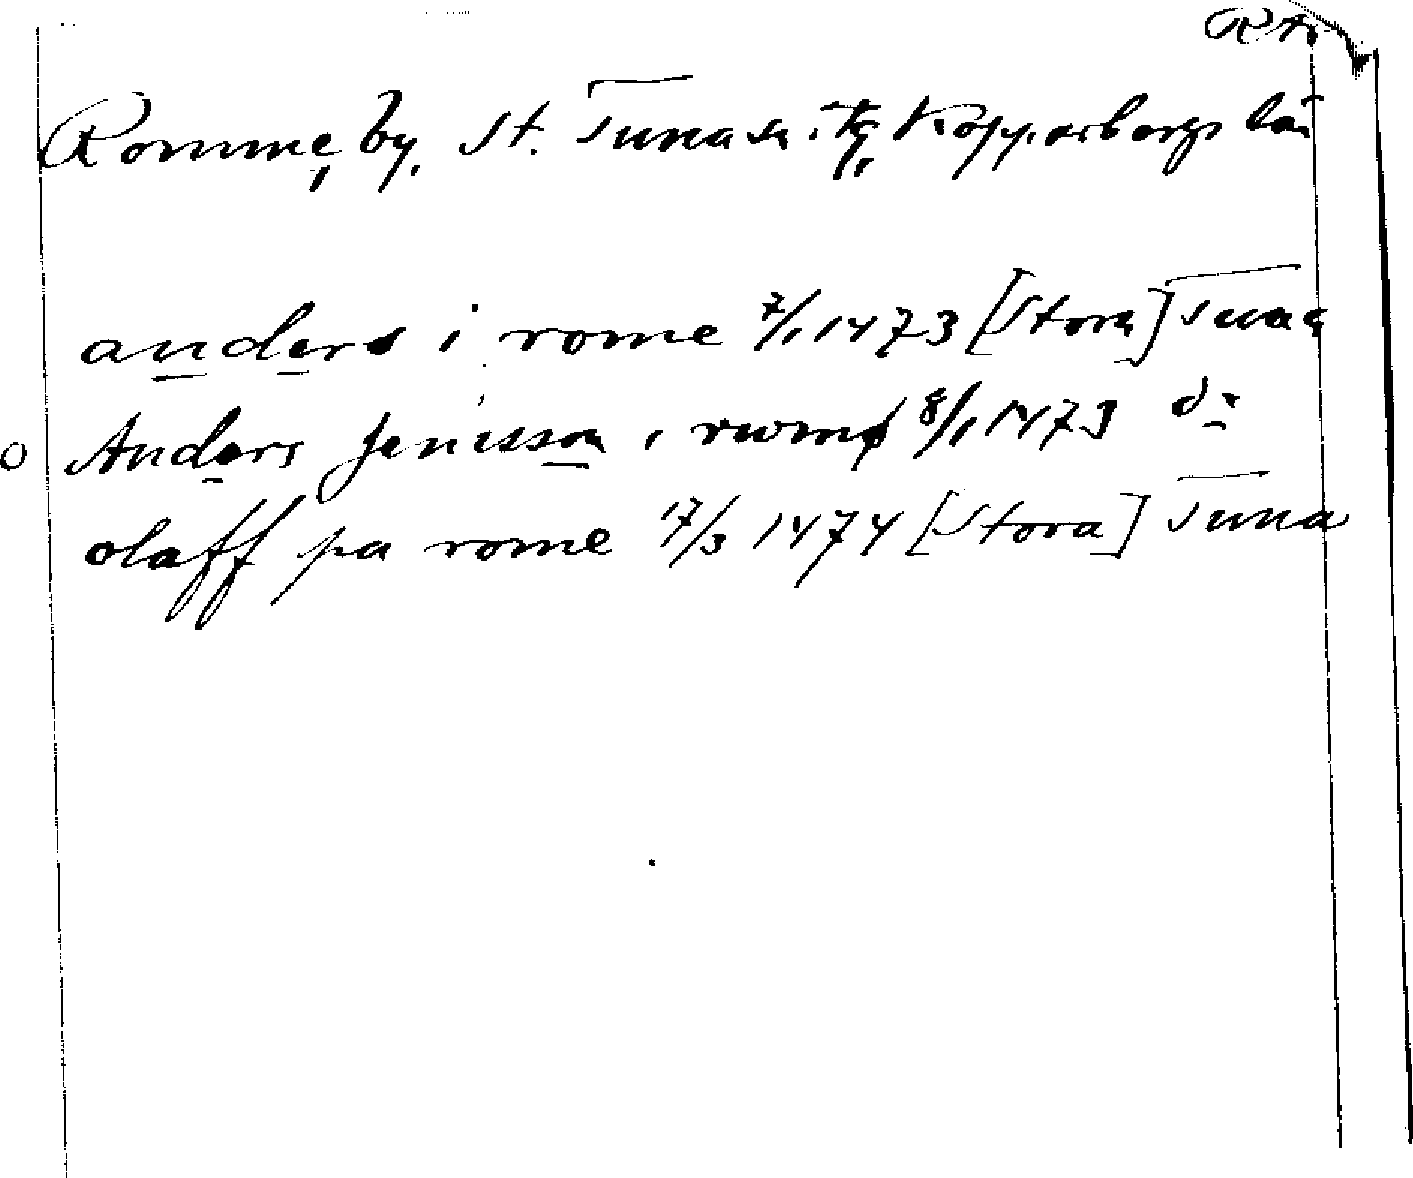 Romme, by, St. Tuna sn, Kopparbergs län
anders i rome 7/1 1473 [Stora] Tuna
o Anders Jenisson i rwmø 8/1 1473 do
olaff pa rome 17/3 1474 [Stora] Tuna